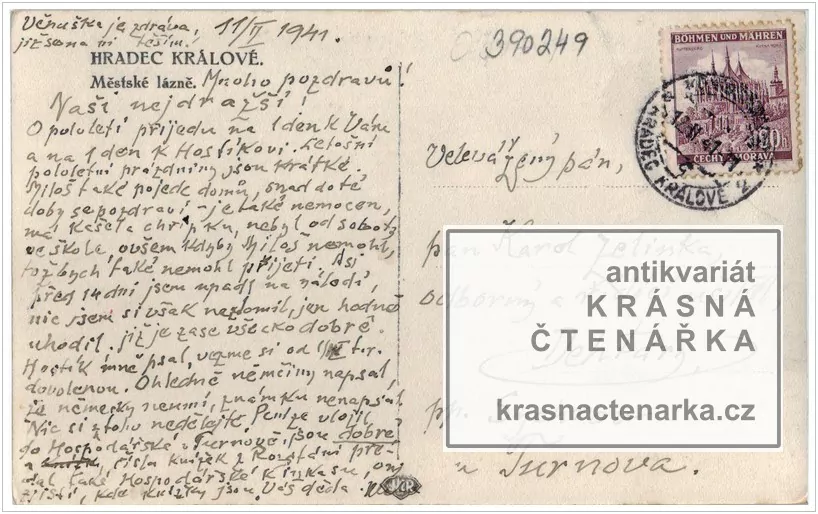 Věnuška je zdráva,
již se na ni těším!
11/II 1941.
390249
HRADEC KRÁLOVÉ.
Městské lázně.
Mnoho pozdravů!
Naši nejdražší!
O pololetí přijedu na 1 den k Vám
a na 1 den k Hostíkovi. Letošní
pololetní prázdniny jsou krátké,
Miloš také pojede domů, snad do té
doby se pozdraví - je také nemocen,
má kašel a chřipku, nebyl od soboty
ve škole, ovšem kdyby Miloš nemohl,
tož bych také nemohl přijeti. Asi
před 14 dní jsem upadl na náledí,
nic jsem si však nezlomil, jen hodně
uhodil. již je zase všecko dobré.
Hostík mně psal, vezme si od
dovolenou. Ohledně němčiny napsal,
že německy neumí, známku nenapsal.
Nic si z toho nedělejte. Peníze vložil
do Hospodářské v Turnově; jsou dobře
a čísla knížek z
dal také Hospodářské k inkasu, oni
zjistí, kde knížky jsou. Váš děda.
BÖHMEN UND MÄHREN
ČECHY A MORAVA
HRADEC KRÁLOVÉ 2
Velevážený pán,
pan Karel Zelinka,
odborný
u Turnova.
antikvariát
KRÁSNÁ
ČTENÁŘKA
krasnactenarka.cz